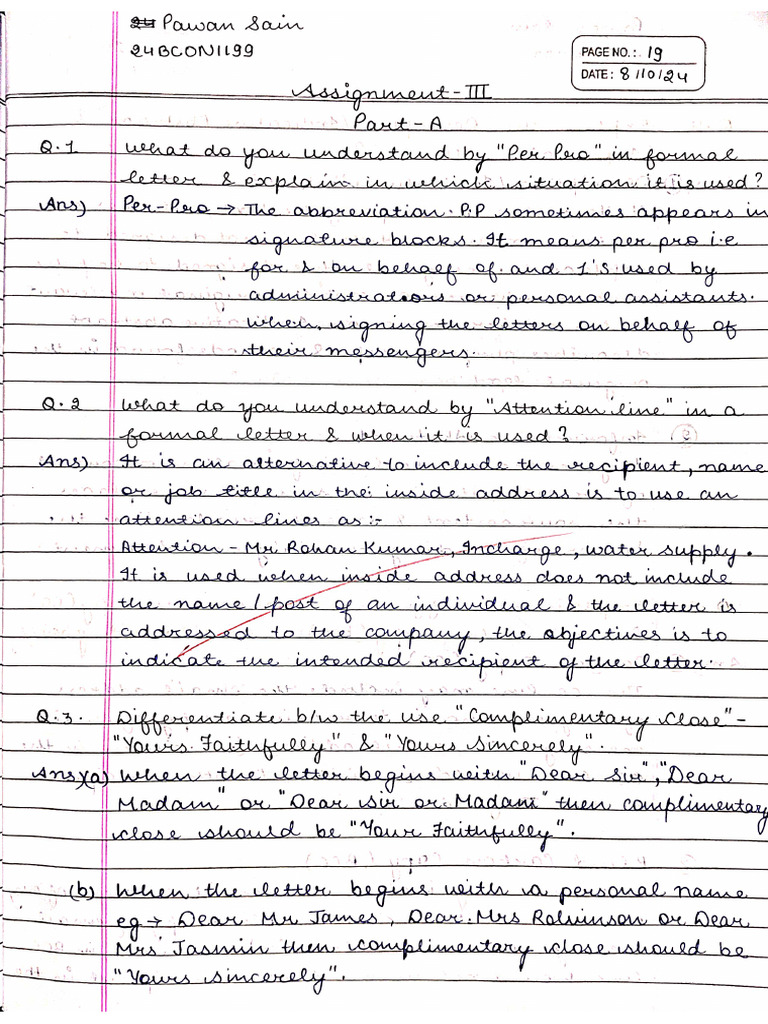 Pawan Sain
24BCON1199
PAGE NO.: 19
DATE: 8/10/24
Assignment-III
Part-A
Q.1 What do you understand by "Per Pro" in formal
letter & explain in which situation it is used?
Ans) Per-Pro → The abbreviation P.P sometimes appears in
signature blocks. It means per pro i.e
for & on behalf of and I's used by
administrators or personal assistants.
When, signing the letters on behalf of
their messengers.
Q.2 What do you understand by "Attention line" in a
formal letter & when it is used?
Ans) It is an alternative to include the recipient, name
or job title in the inside address is to use an
attention lines as :-
Attention - Mr. Rohan Kumar, Incharge, water supply.
It is used when inside address does not include
the name / post of an individual & the letter is
addressed to the company, the objectives is to
indicate the intended recipient of the letter.
Q.3. Differentiate b/w the use "Complimentary Close" -
"Yours Faithfully" & "Yours Sincerely".
Ans)(a) When the letter begins with "Dear Sir", "Dear
Madam" or "Dear Sir or Madam" then complimentary
close should be "Your Faithfully".
(b) When the letter begins with a personal name
eg → Dear Mr James, Dear Mrs Robinson or Dear
Mrs Jasmin then complimentary close should be
"Yours sincerely".